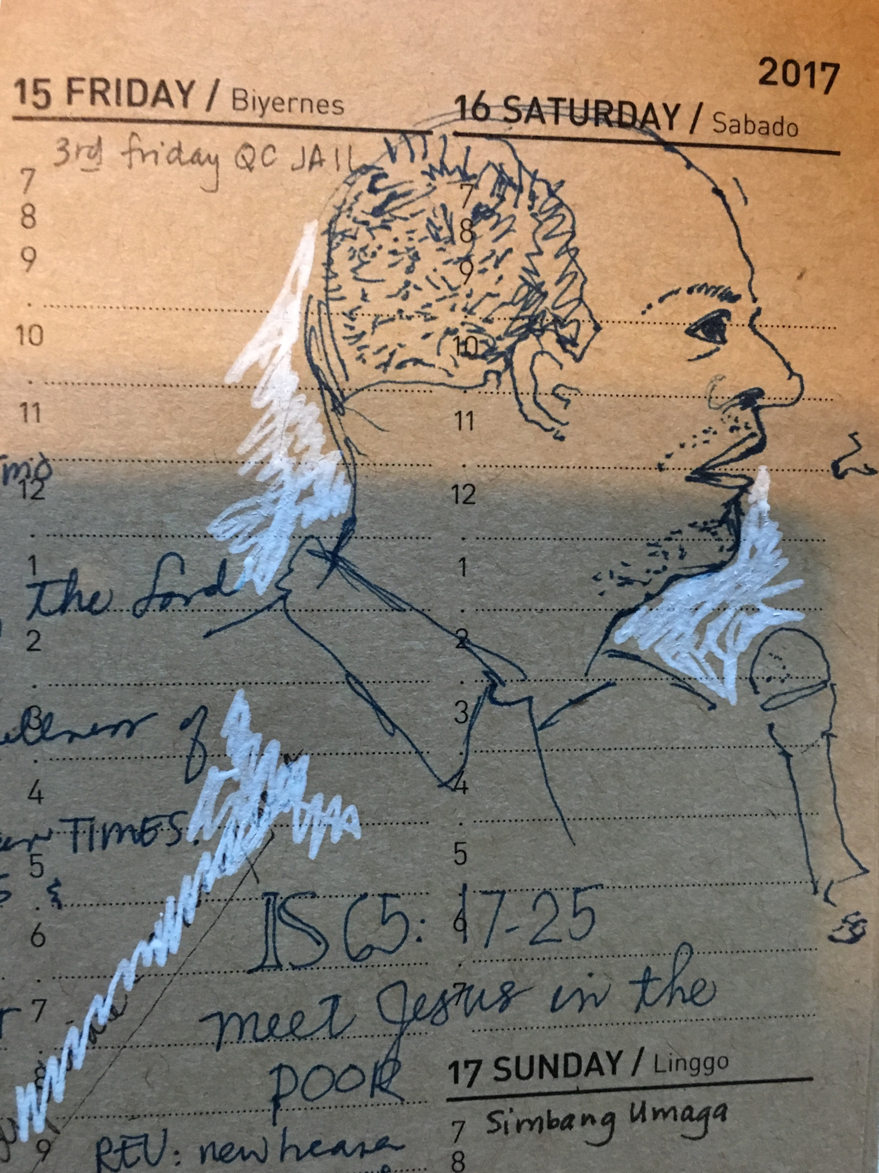 2017
15 FRIDAY / Biyernes
3rd friday QC JAIL
7
8
9
10
11
12
1
the Lord
2
3
of
4
TIMES.
5
6
7
9
16 SATURDAY / Sabado
7
8
9
10
11
12
1
2
3
4
5
6
7
IS 65: 17-25
meet Jesus in the
POOR
REV: new heave
17 SUNDAY / Linggo
7 Simbang Umaga
8